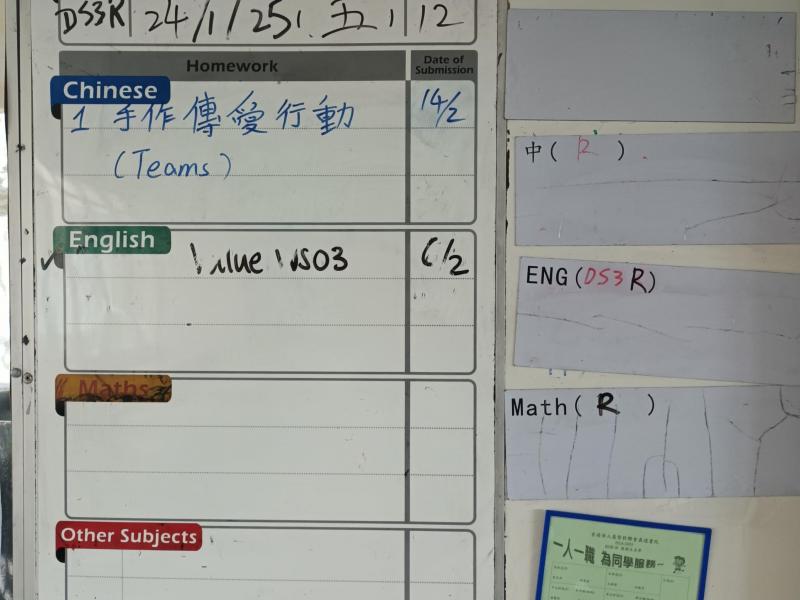 DS3R 24/1/25 五 12
Homework Date of Submission
Chinese
1 手作傳愛行動 14/2
(Teams)
English
WS03 6/2
Maths
Other Subjects
中( R )
ENG(DS3R)
Math( R )
一人一職 為同學服務